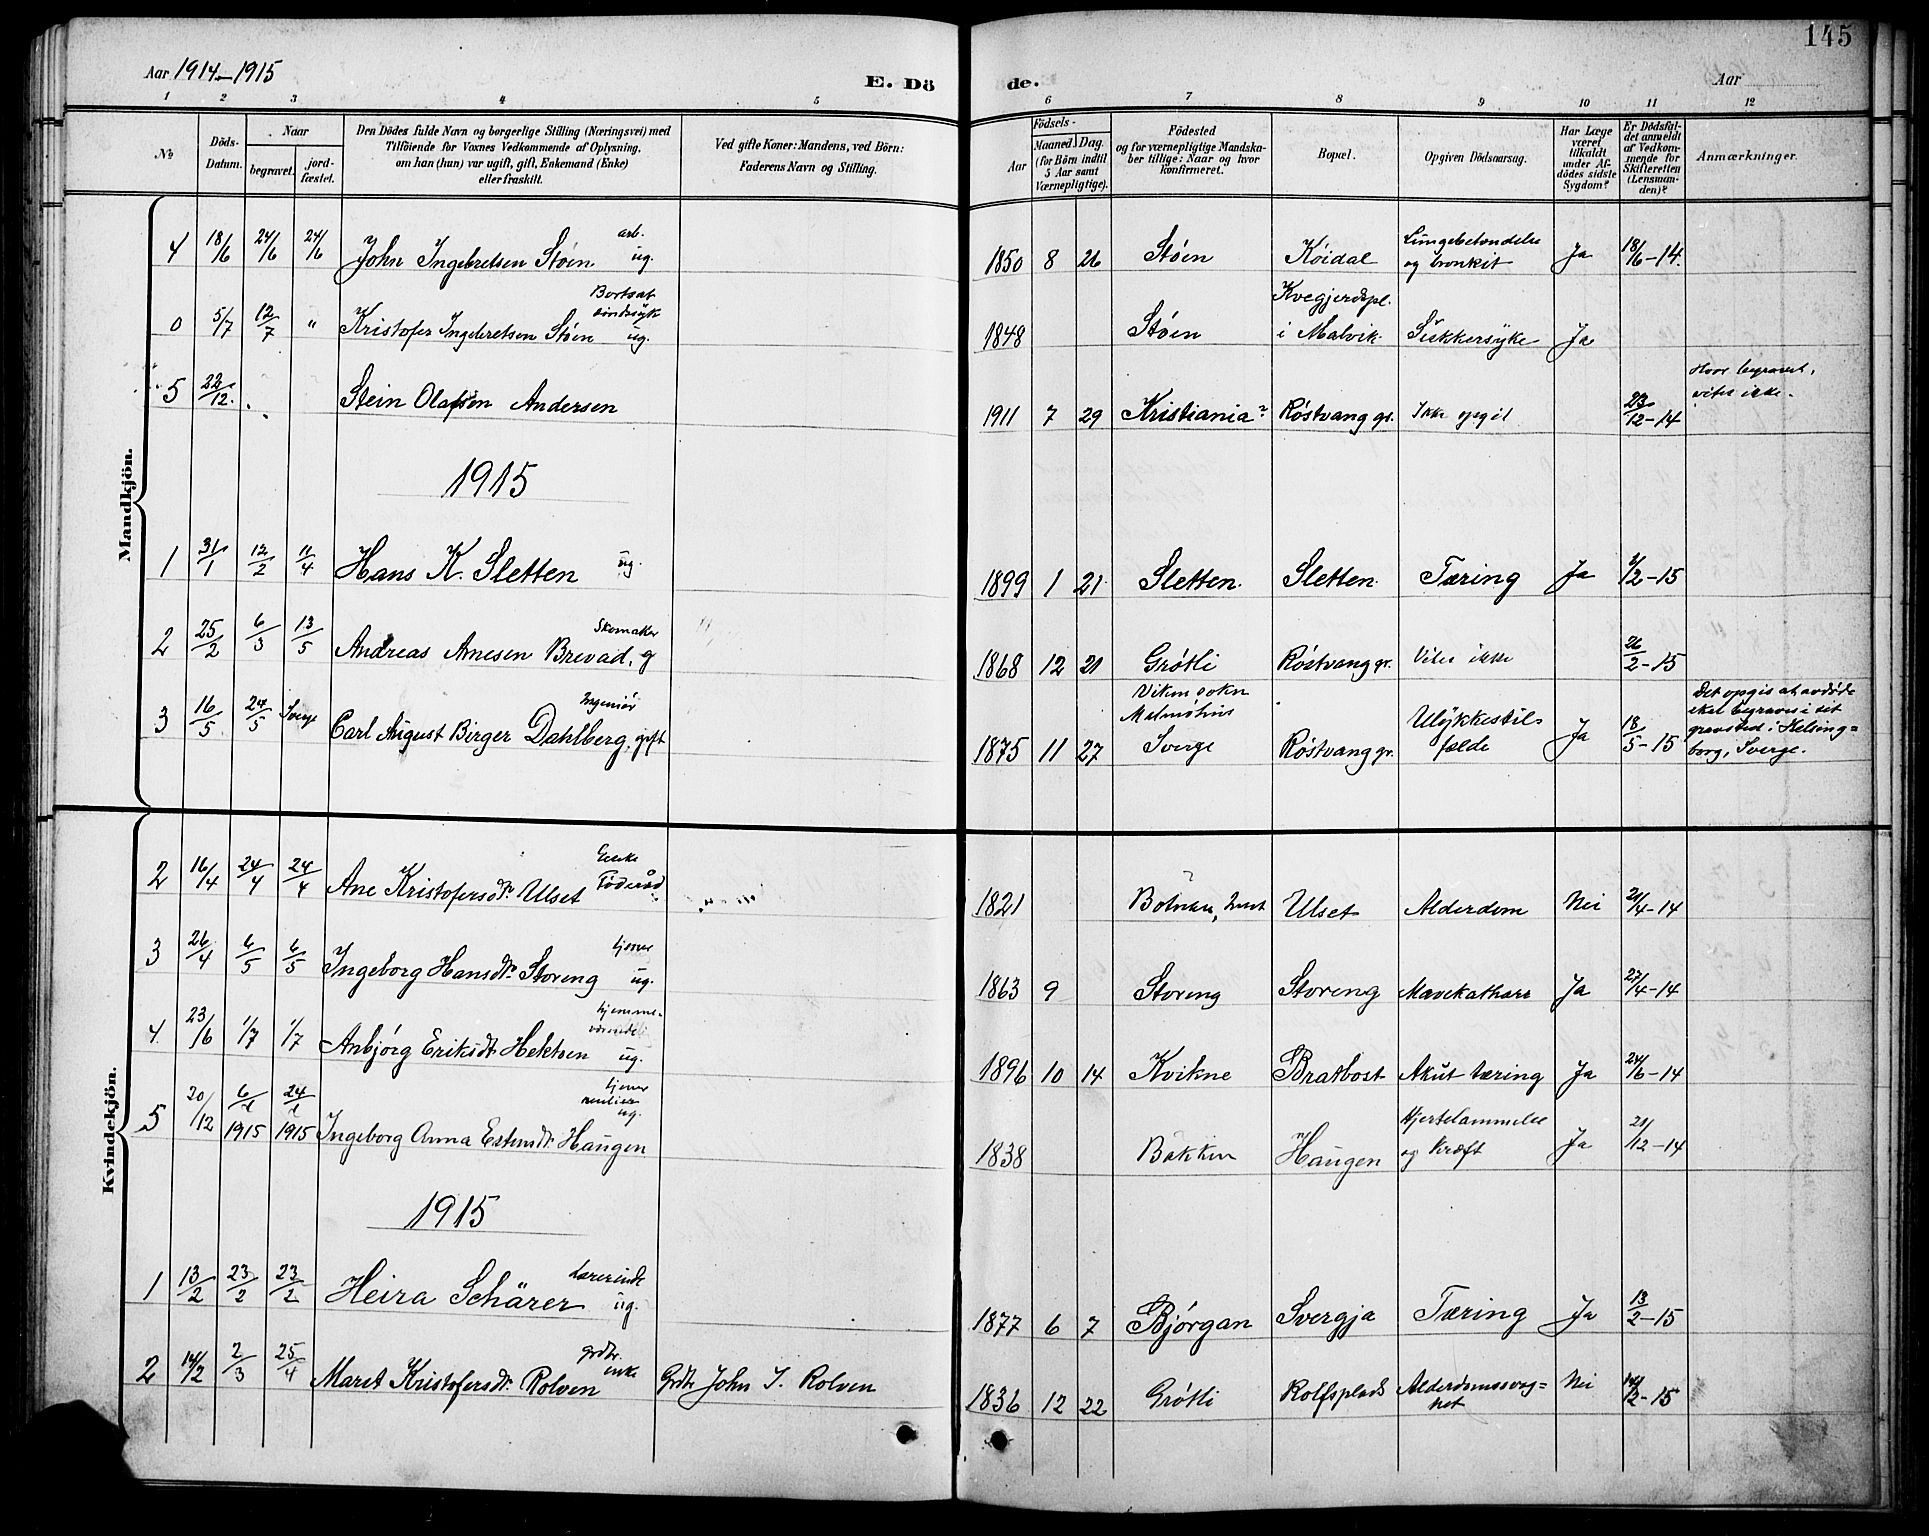 145
Aar 1914-1915
E. Dö
de.
Aar
1 2 3 4 5 6 7 8 9 10 11 12
No
Döds-
Datum.
Naar
begravet.
jord-
fæstet.
Den Dödes fulde Navn og borgerlige Stilling (Næringsvei) med
Tilföiende for Voxnes Vedkommende af Oplysning,
om han (hun) var ugift, gift, Enkemand (Enke)
eller fraskilt.
Ved gifte Koner: Mandens, ved Börn:
Faderens Navn og Stilling.
Födsels-
Aar
Maaned. Dag.
(for Börn indtil
5 Aar samt
Værnepligtige).
Födested
og for værnepligtige Mandska-
ber tillige: Naar og hvor
konfirmeret.
Bopæl.
Opgiven Dödsaarsag.
Har Læge
været
tilkaldt
under Af-
dödes sidste
Sygdom?
Er Dödsfal-
det anmeldt
af Vedkom-
mende for
Skifteretten
(Lensman-
den)?
Anmærkninger.
Mandkjön.
4 18/6 24/6 24/6 John Ingebretsen Støen arb. ug. 1850 8 26 Støen Koidal Lungebetændelse og bronkit Ja 18/6-14.
0 5/7 12/7 " Kristofer Ingebretsen Støen Bortsat sindssyk ug. 1848 Støen Kvegjerdspl. i Malvik Sukkersyke Ja
5 22/12. Stein Olafsen Andersen 1911 7 29 Kristiania? Røstvang gr. Ikke opgit 23/12-14 Hvor begravet, vites ikke.
1915
1 31/1 12/2 11/4 Hans K. Sletten ug. 1899 1 21 Sletten. Sletten. Tæring Ja 1/2-15
2 25/2 6/3 13/5 Andreas Arnesen Brevad, g Skomaker 1868 12 21 Grøtli Røstvang gr. Vites ikke 26/2-15
3 16/5 24/5 Sverge Carl August Birger Dahlberg, gift Ingeniør 1875 11 27 Viken sokn Malmøhus Sverge Røstvang gr. Ulykkestil-fælde Ja 18/5-15 Det opgis at avdøde skal begraves i sit gravsted i Helsing=borg, Sverge.
Kvindekjön.
2 16/4 24/4 24/4 Ane Kristofersdtr. Ulset Enke Føderåd 1821 Ulset Alderdom Nei 21/4-14
3 26/4 6/5 6/5 Ingeborg Hansdtr. Storeng tjener ug. 1863 9 Storeng Storeng Mavekatharr Ja 27/4-14
4 23/6 1/7 1/7 Anbjørg Eriksdtr. Hektoen hjemme-værende ug. 1896 10 14 Kvikne Bratbost Akut tæring Ja 24/6-14
5 20/12 6/1 1915 24/1 1915 Ingeborg Anna Estensdtr. Haugen tjener ug. 1838 Bakken Haugen Hjertelammelse og kræft Ja 21/12-14
1915
1 13/2 23/2 23/2 Heira Schärer Lærerinde ug. 1877 6 7 Bjørgan Svergja Tæring Ja 13/2-15
2 14/2 2/3 25/4 Marit Kristofersdtr. Rolven grdbr. enke Grdbr John J. Rolven 1836 12 22 Grøtli Rolfsplads Alderdomssvag=het Nei 14/2-15